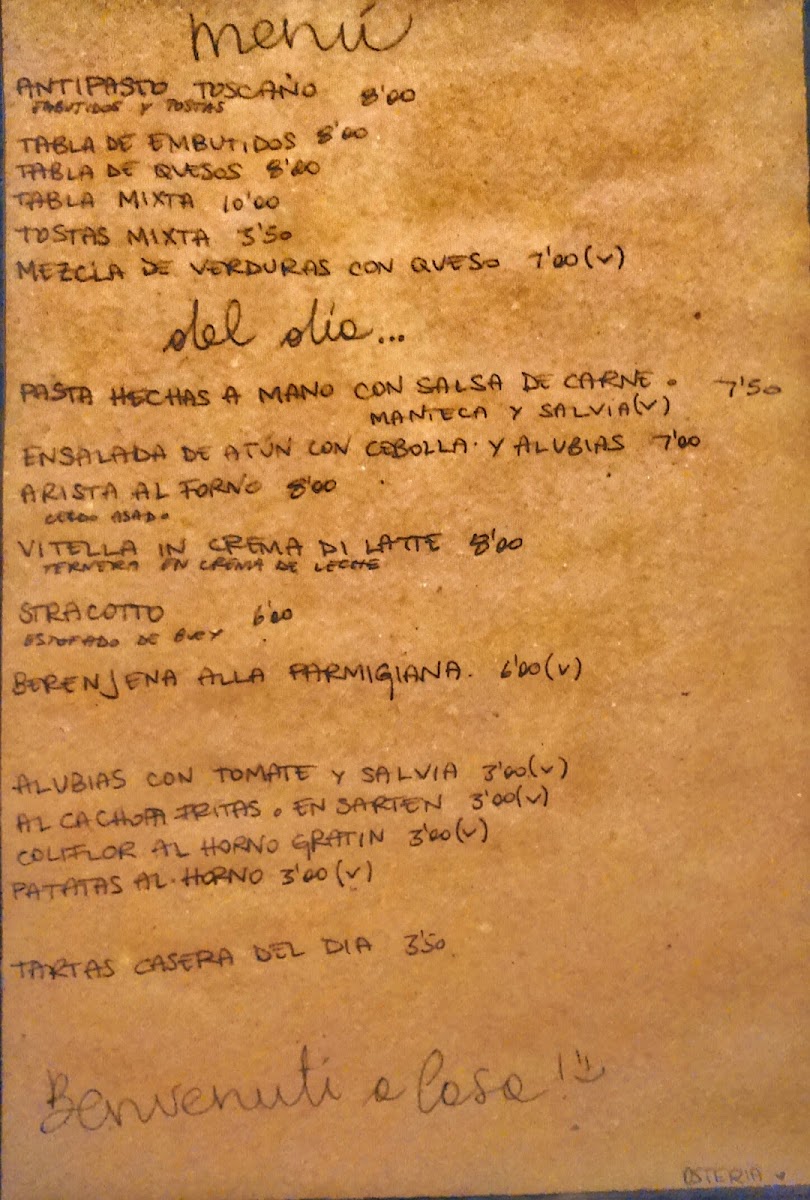 menú
ANTIPASTO TOSCAÑO 8'00
EMBUTIDOS Y TOSTAS
TABLA DE EMBUTIDOS 8'00
TABLA DE QUESOS 8'00
TABLA MIXTA 10'00
TOSTAS MIXTA 3'50
MEZCLA DE VERDURAS CON QUESO 7'00 (V)
del día...
PASTA HECHAS A MANO CON SALSA DE CARNE o 7'50
MANTECA Y SALVIA (V)
ENSALADA DE ATÚN CON CEBOLLA Y ALUBIAS 7'00
ARISTA AL FORNO 8'00
CERDO ASADO
VITELLA IN CREMA DI LATTE 8'00
TERNERA EN CREMA DE LECHE
STRACOTTO 6'00
ESTOFADO DE BUEY
BERENJENA ALLA PARMIGIANA. 6'00 (V)
ALUBIAS CON TOMATE Y SALVIA 3'00 (V)
ALCACHOFA FRITAS o EN SARTEN 3'00 (V)
COLIFLOR AL HORNO GRATIN 3'00 (V)
PATATAS AL HORNO 3'00 (V)
TARTAS CASERA DEL DIA 3'50
Benvenuti a Casa!!
OSTERIA